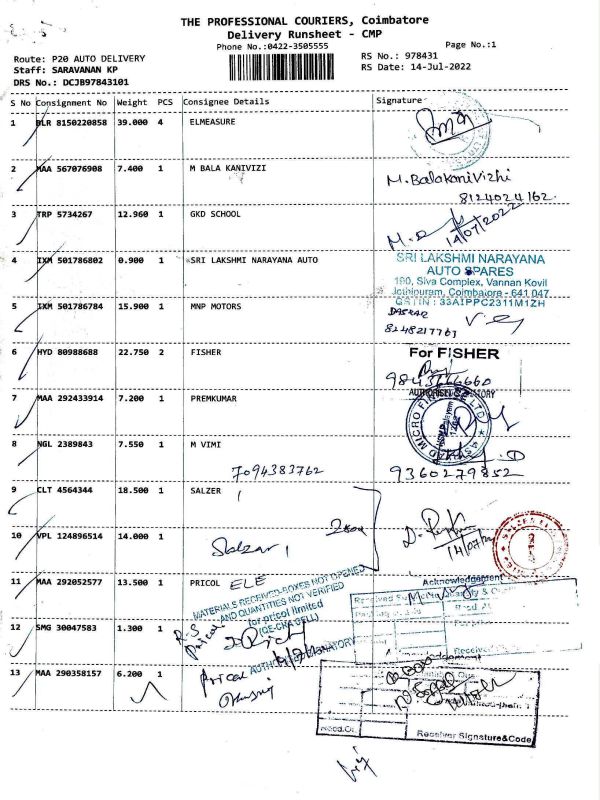 THE PROFESSIONAL COURIERS, Coimbatore
Delivery Runsheet - CMP
Phone No.:0422-3505555
Page No.:1
Route: P20 AUTO DELIVERY
Staff: SARAVANAN KP
DRS No.: DCJB97843101
RS No.: 978431
RS Date: 14-Jul-2022
S No Consignment No Weight PCS Consignee Details Signature
1 BLR 8150220858 39.000 4 ELMEASURE
2 MAA 567076908 7.400 1 M BALA KANIVIZI
M.BalaKaniVizhi
8124024162
3 TRP 5734267 12.960 1 GKD SCHOOL
14/07/2022
4 IXM 501786802 0.900 1 SRI LAKSHMI NARAYANA AUTO
SRI LAKSHMI NARAYANA
AUTO SPARES
190, Siva Complex, Vannan Kovil
Jothipuram, Coimbatore - 641 047
GSTIN : 33AIPPC2311M1ZH
5 IXM 501786784 15.900 1 MNP MOTORS
8148217763
6 HYD 80988688 22.750 2 FISHER
For FISHER
7 MAA 292433914 7.200 1 PREMKUMAR
8 NGL 2389843 7.550 1 M VIMI
7094383762
9360279852
9 CLT 4564344 18.500 1 SALZER
10 VPL 124896514 14.000 1
Salzar
11 MAA 292052577 13.500 1 PRICOL ELE
MATERIALS RECEIVED-BOXES NOT OPENED
AND QUANTITIES NOT VERIFIED
for pricol limited
Acknowledgement
12 SMG 30047583 1.300 1
AUTHORISED SIGNATORY
13 MAA 290358157 6.200 1
Pricol
Receiver Signature&Code